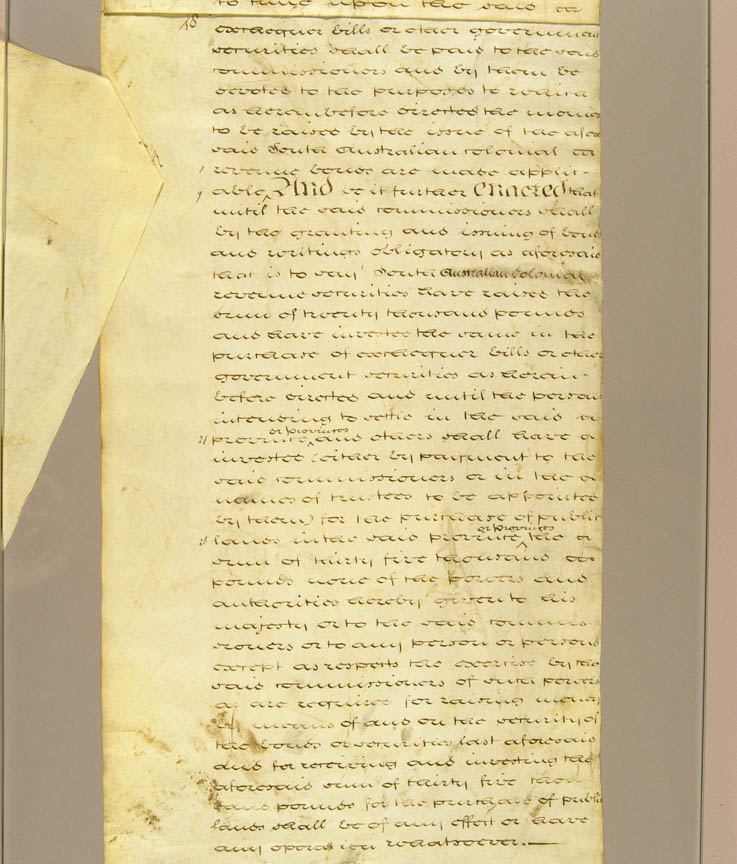 to time upon the said
18
exchequer bills or other government
securities shall be paid to the said
commissioners and by them be
devoted to the purposes to which
as hereinbefore directed the monies
to be raised by the issue of the afore
said South Australian colonial
revenue bonds are made applic-
able And be it further Enacted that
until the said commissioners shall
by the granting and issuing of bonds
and writings obligatory as aforesaid
that is to say South Australian Colonial
revenue securities have raised the
sum of twenty thousand pounds
and have invested the same in the
purchase of exchequer bills or other
government securities as herein-
before directed and until the persons
intending to settle in the said
or provinces
province and others shall have
invested (either by payment to the
said commissioners or in the
names of trustees to be appointed
by them) for the purchase of public
or provinces
lands in the said province the
sum of thirty five thousand
pounds none of the powers and
authorities hereby given to his
majesty or to the said commis
sioners or to any person or persons
except as respects the exercise by the
said commissioners of such powers
as are required for raising money
by means of and on the security of
the bonds or securities last aforesaid
and for receiving and investing the
aforesaid sum of thirty five thou
sand pounds for the purchase of public
lands shall be of any effect or have
any operation whatsoever.—